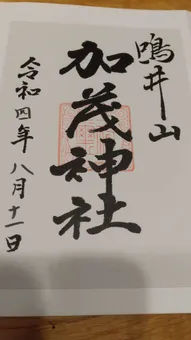 鳴井山
加茂神社
令和四年八月十一日